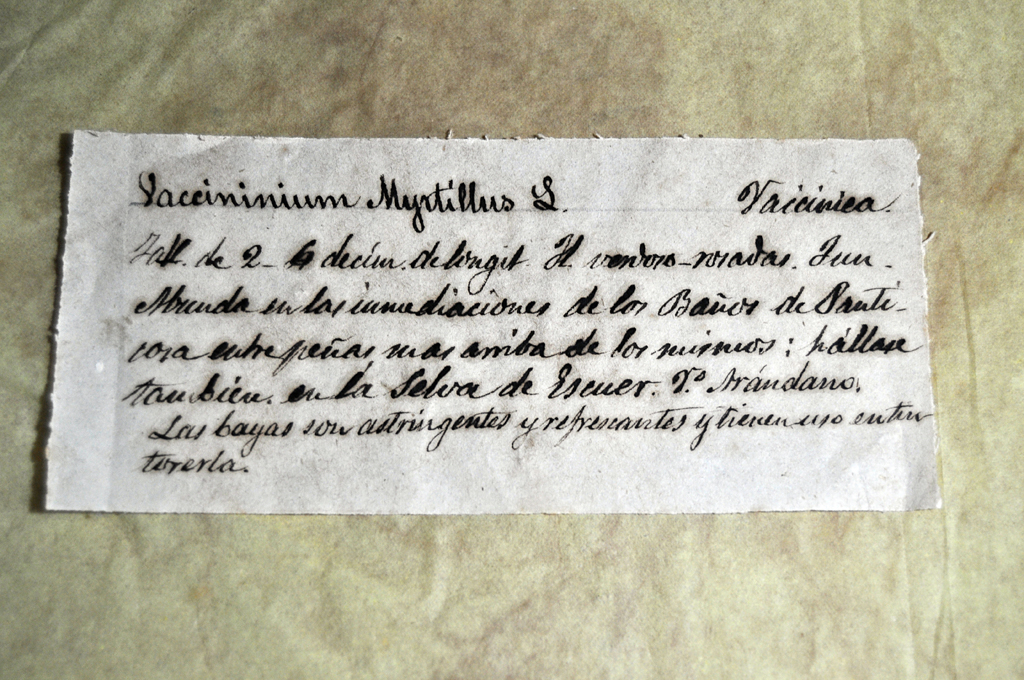 Vaccininium Myrtillus L. Vaccinica.
Tall. de 2-6 decím. de longit. Fl. verdoso-rosadas. Jun.
Abunda en las inmediaciones de los Baños de Panti-
cosa entre peñas mas arriba de los mismos; hállase
también en la Selva de Escuer. V.º Arándano.
Las bayas son astringentes y refrescantes y tienen uso en tin
torería.